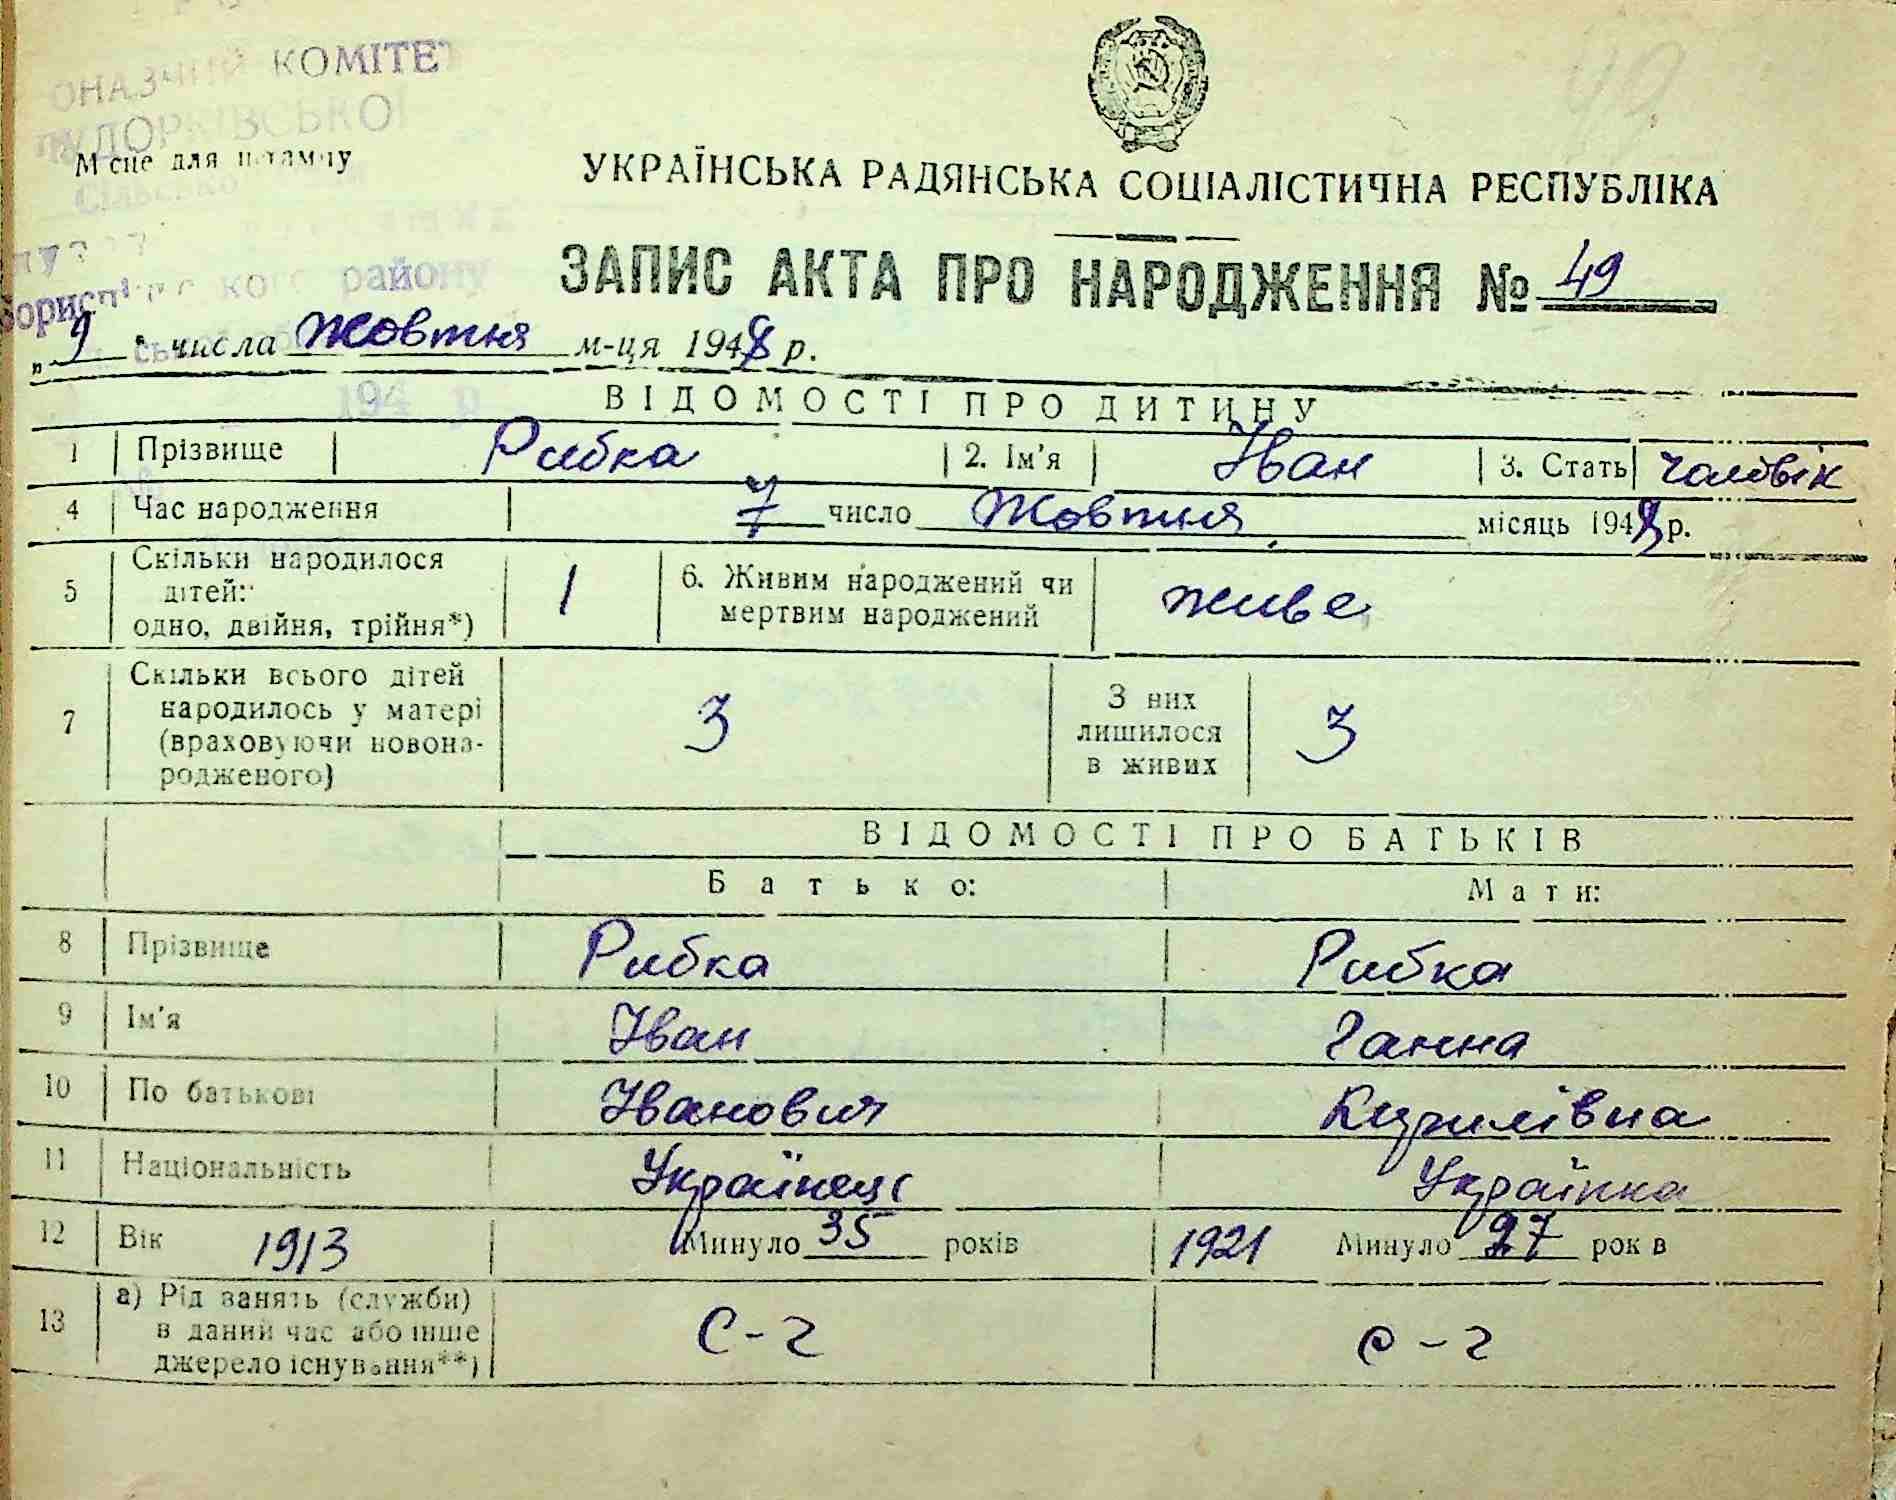 КОМІТЕТ
Місце для штампу
УКРАЇНСЬКА РАДЯНСЬКА СОЦІАЛІСТИЧНА РЕСПУБЛІКА
ЗАПИС АКТА ПРО НАРОДЖЕННЯ № 49
району
„9" числа Жовтня м-ця 1948 р.
194 р
ВІДОМОСТІ ПРО ДИТИНУ
1 Прізвище Рибка 2. Ім'я Іван 3. Стать чоловік
4 Час народження 7 число Жовтня місяць 1948 р.
5 Скільки народилося дітей: одно, двійня, трійня*) 1 6. Живим народжений чи мертвим народжений живе
7 Скільки всього дітей народилось у матері (враховуючи новонародженого) 3 З них лишилося в живих 3
ВІДОМОСТІ ПРО БАТЬКІВ
Батько: Мати:
8 Прізвище Рибка Рибка
9 Ім'я Іван Ганна
10 По батькові Іванович Кирилівна
11 Національність Українець Українка
12 Вік 1913 Минуло 35 років 1921 Минуло 27 рок в
13 а) Рід занять (служби) в даний час або інше джерело існування**) С-г с-г